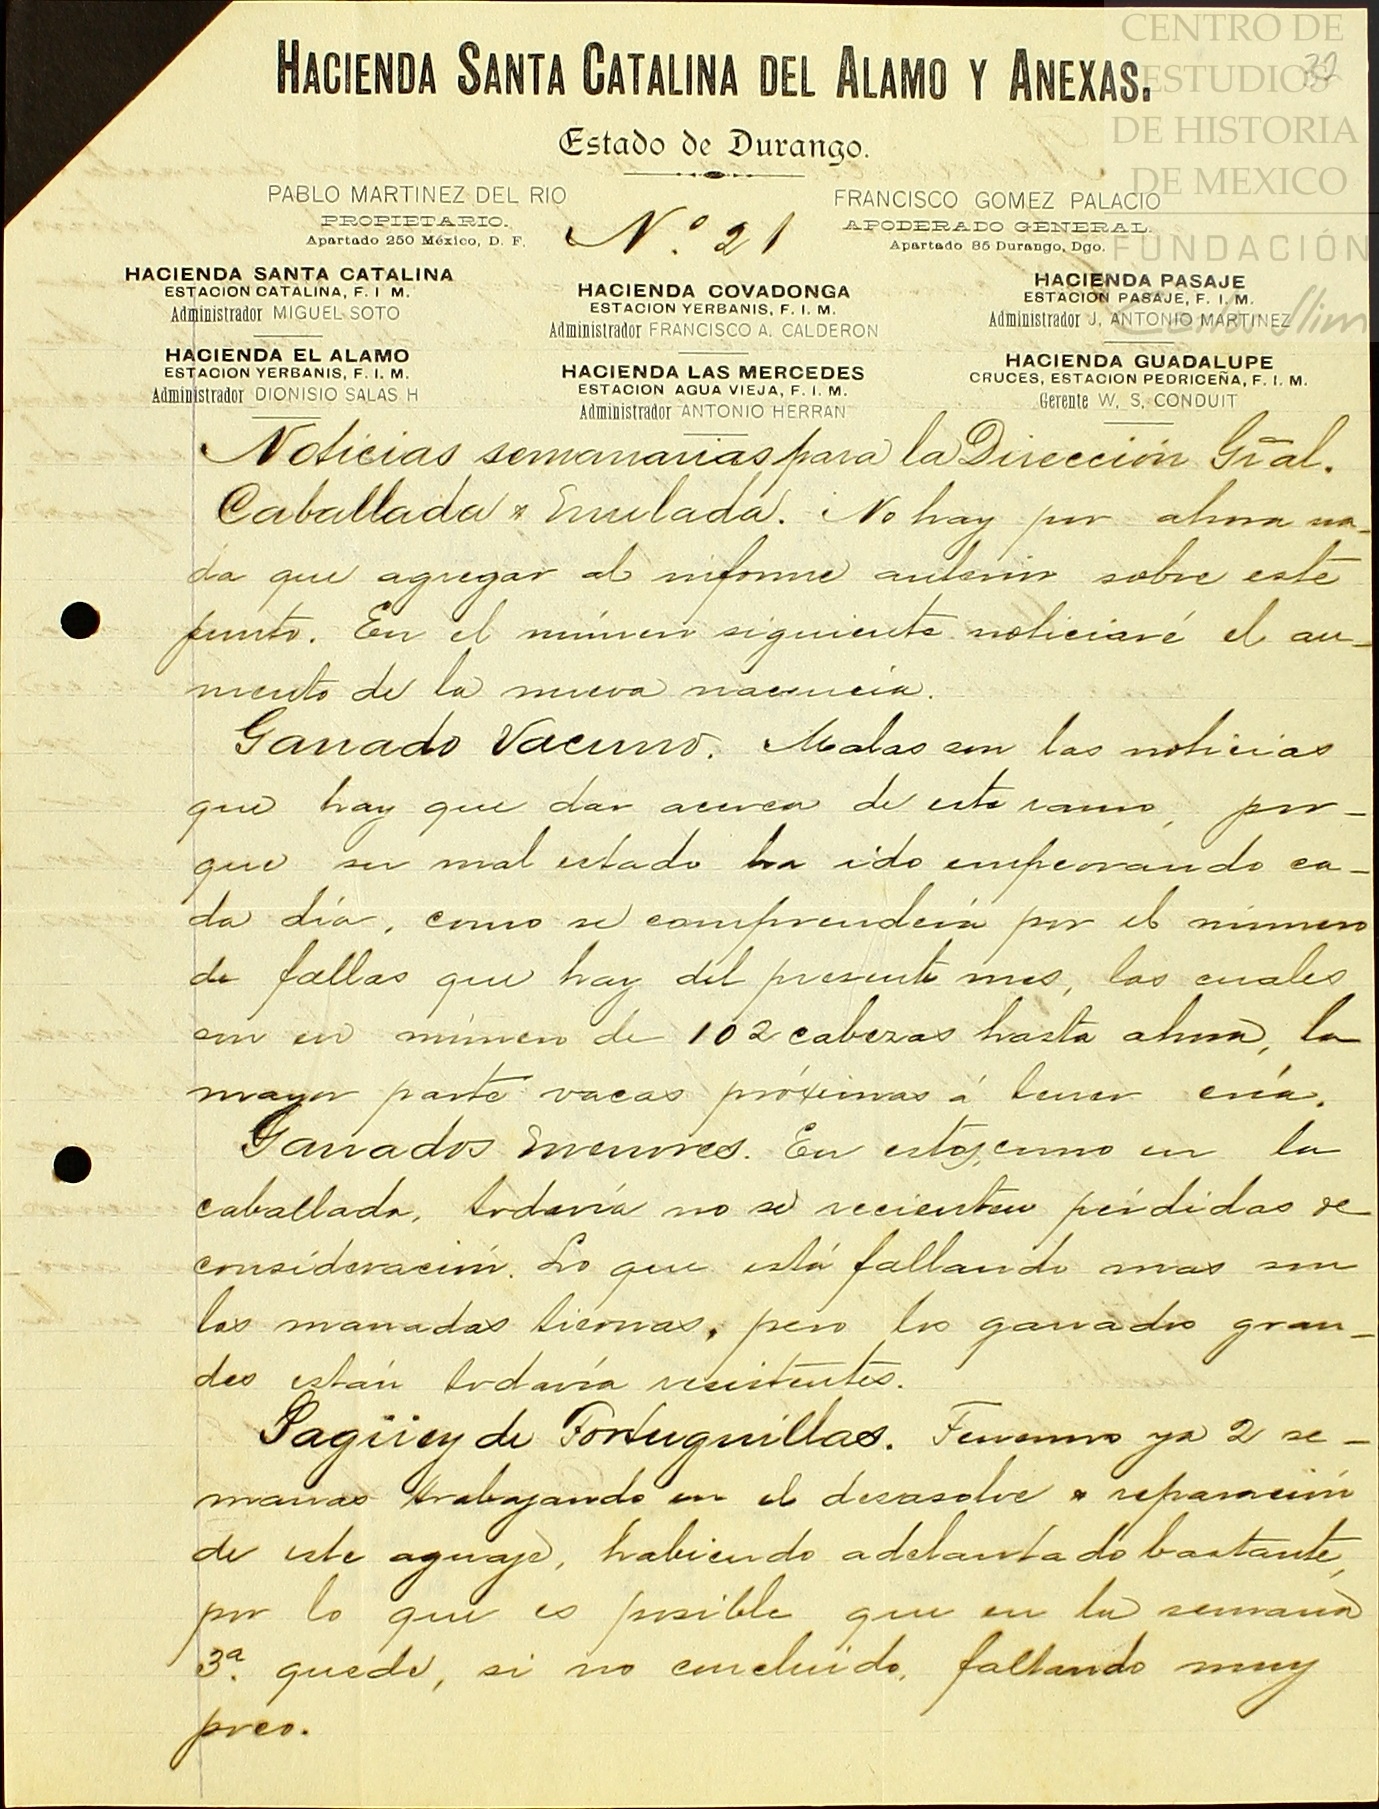 CENTRO DE
ESTUDIOS
DE HISTORIA
DE MEXICO
FUNDACIÓN
Carlos Slim
32
HACIENDA SANTA CATALINA DEL ALAMO Y ANEXAS.
Estado de Durango.
PABLO MARTINEZ DEL RIO
PROPIETARIO.
Apartado 250 México, D. F.
FRANCISCO GOMEZ PALACIO
APODERADO GENERAL.
Apartado 85 Durango, Dgo.
N.º 21
HACIENDA SANTA CATALINA
ESTACION CATALINA, F. I. M.
Administrador MIGUEL SOTO
HACIENDA EL ALAMO
ESTACION YERBANIS, F. I. M.
Administrador DIONISIO SALAS H
HACIENDA COVADONGA
ESTACION YERBANIS, F. I. M.
Administrador FRANCISCO A. CALDERON
HACIENDA LAS MERCEDES
ESTACION AGUA VIEJA, F. I. M.
Administrador ANTONIO HERRAN
HACIENDA PASAJE
ESTACION PASAJE, F. I. M.
Administrador J. ANTONIO MARTINEZ
HACIENDA GUADALUPE
CRUCES, ESTACION PEDRICEÑA, F. I. M.
Gerente W. S. CONDUIT
Noticias semanarias para la Dirección Gral.
Caballada y mulada. No hay por ahora na-
da que agregar al informe anterior sobre este
punto. En el número siguiente noticiaré el au-
mento de la nueva nacencia.
Ganado Vacuno. Malas son las noticias
que hay que dar acerca de este ramo, por-
que su mal estado ha ido empeorando ca-
da día, como se comprenderá por el número
de fallas que hay del presente mes, las cuales
son en número de 102 cabezas hasta ahora, la
mayor parte vacas próximas á tener cría.
Ganados menores. En estos, como en la
caballada, todavía no se recienten pérdidas de
consideración. Lo que está fallando mas son
las manadas tiernas, pero los ganados gran-
des están todavía resistentes.
Pagüey de Tortuguillas. Tenemos ya 2 se-
manas trabajando en el desasolve y reparación
de este aguaje, habiendo adelantado bastante,
por lo que es posible que en la semana
3ª. quede, si no concluido, faltando muy
poco.